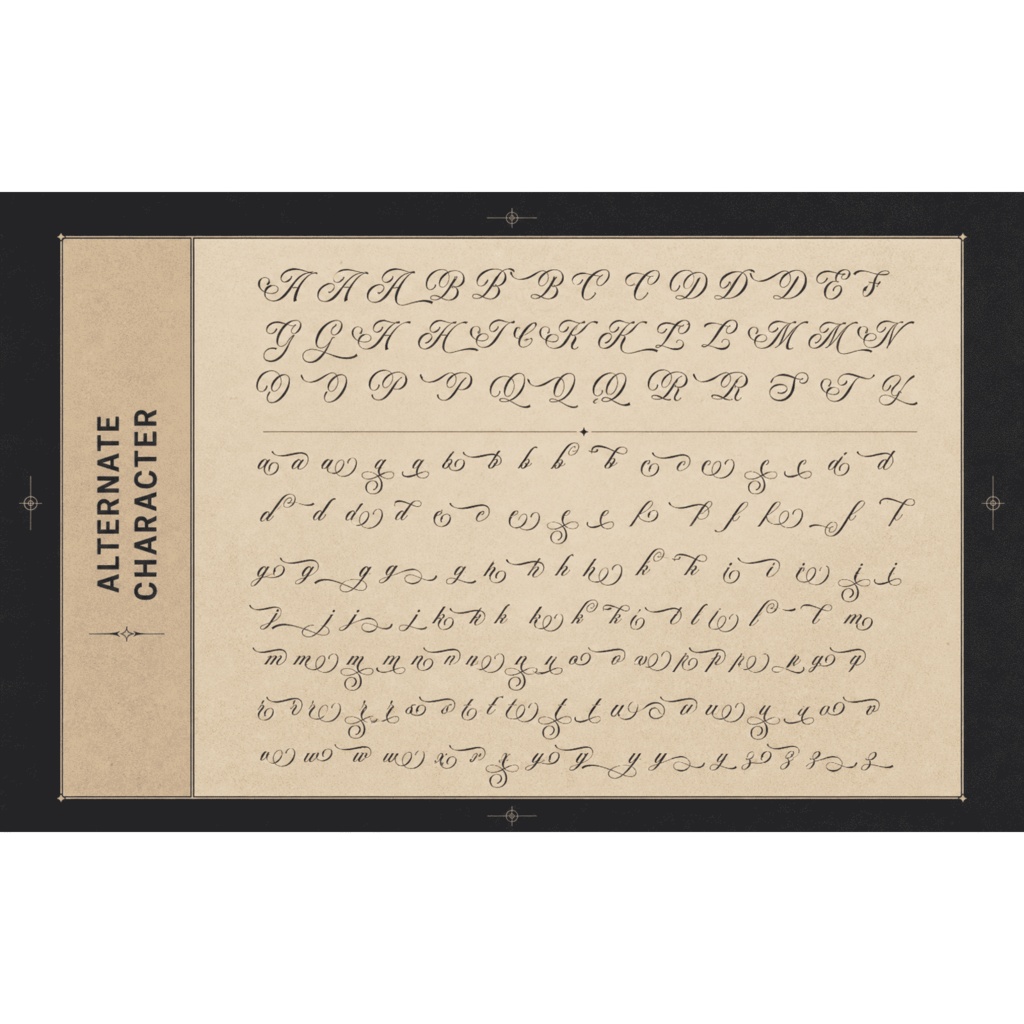 ALTERNATE
CHARACTER
A A A B B B C C D D D E F
G G H H I C K K L L M M N
O O P P Q Q Q R R S T Y
a a a a a b b b b b c c c c c d d
d d d d e e e e e f f f f f f
g g g g g h h h h h h i i i i i
j j j j k k k k k k i l l l l l m
m m m m n n n n n o o o p p p p q q
r r r r r s s t t t t t u u u u u u v v
v w w w w x x x y y y y y z z z z